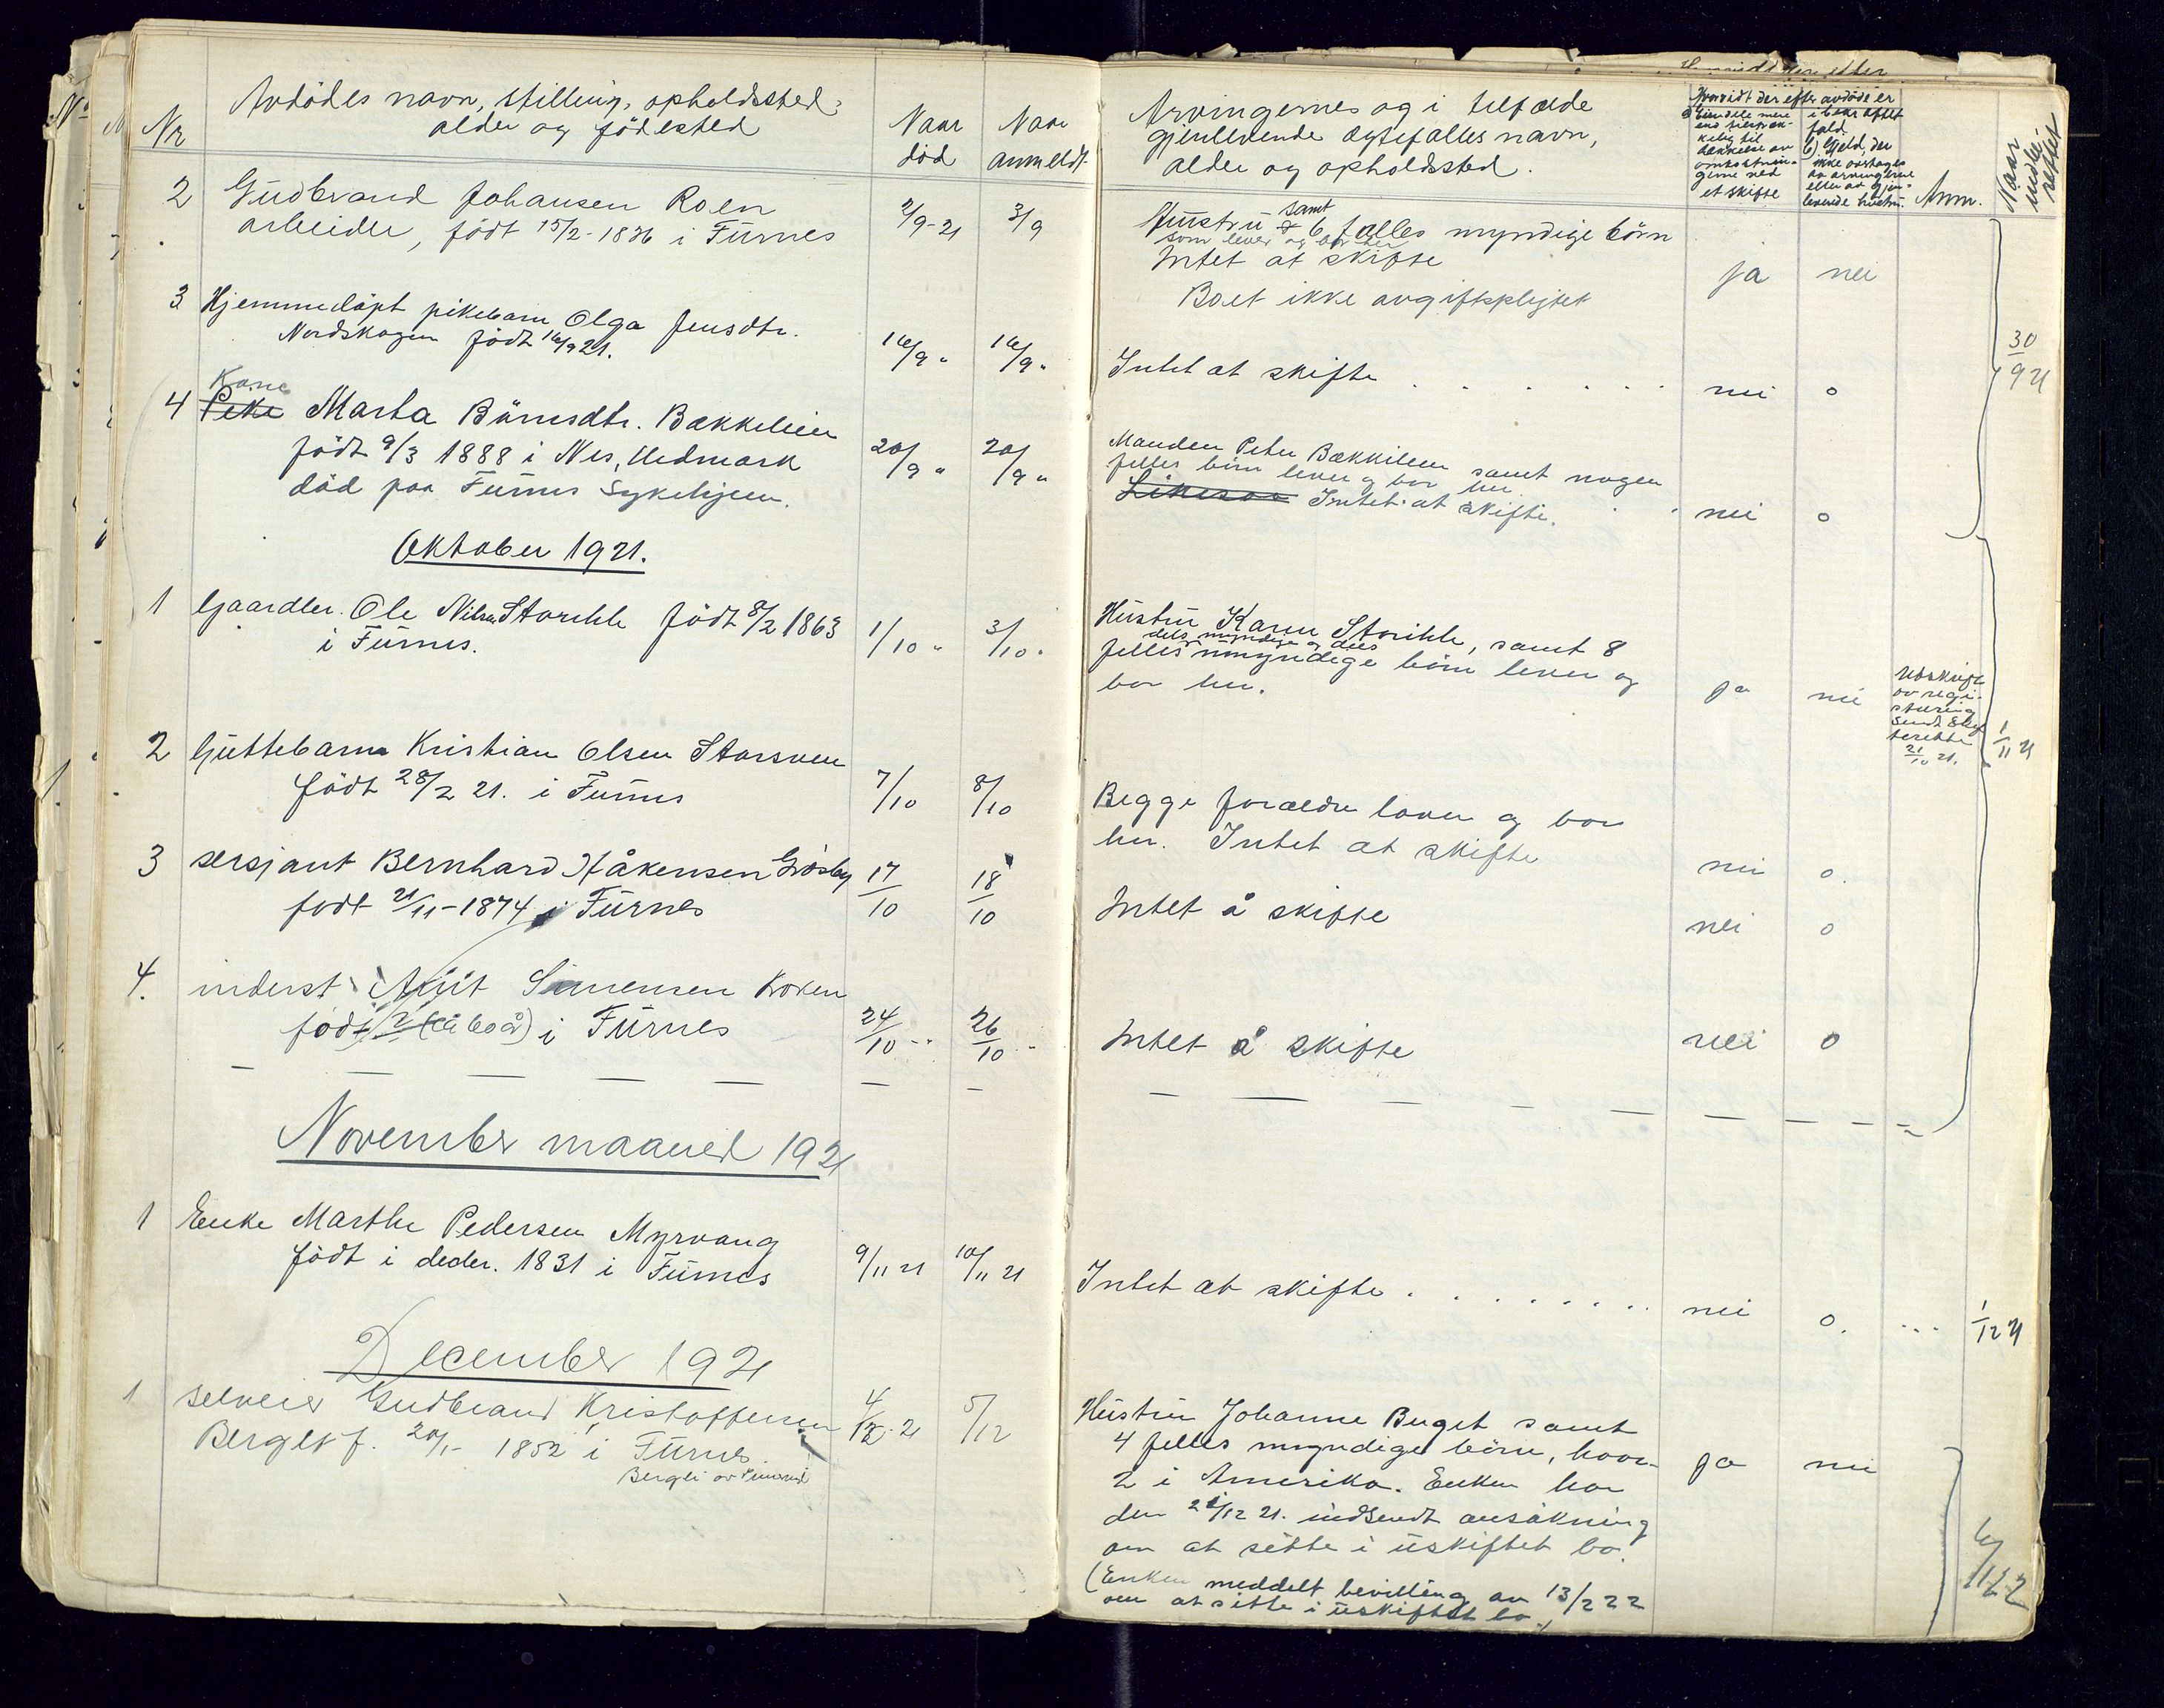 Nr
Avdödes navn, stilling, opholdssted,
alder og födested
Naar
död
Naar
anmeldt
2 Gudbrand Johansen Roen
arbeider, födt 15/2-1836 i Furnes
2/9-21 3/9
3 Hjemmedöpt pikebarn Olga Jensdtr.
Nordskogen födt 16/9 21.
16/9 " 16/9 "
Kone
4 Pike Marta Börnsdtr. Bækkelien
födt 9/3 1888 i Nes, Hedmark
död paa Furnes Sykehjem.
20/9 " 20/9 "
Oktober 1921.
1 Gaardbr. Ole Nilsen Storihle födt 8/2 1863
i Furnes.
1/10 " 3/10 "
2 Guttebarn Kristian Olsen Storsveen
födt 28/2 21. i Furnes
7/10 8/10
3 sersjant Bernhard Håkensen Grösby
fodt 21/11-1874 i Furnes
17/10 18/10
4. inderst Anit Simensen Koken
födt ? (ca 60 år) i Furnes
24/10 " 26/10 "
November maaned 1921
1 Enke Marthe Pedersen Myrvang
födt i decbr. 1831 i Furnes
9/11 21 10/11 21
December 1921
1 selveier Gudbrand Kristoffersen
Berget f. 20/1- 1852 i Furnes
Bergli av
4/12-21 5/12
Arvingernes og i tilfælde
gjenlevende ægtefælles navn,
alder og opholdssted.
Hvorvidt der efter avdöde er
a) Eiendele mere
end tilstræk-
kelig til
dækkelse av
omkostnin-
gerne ved
et skifte
i bekræftet
fald.
b) Gjeld, der
ikke overtages
av arvingerne
eller av gjen-
levende hustru.
Anm.
Naar
indbe-
rettet
Hustru samt 6 fælles myndige börn
som lever og bor her
Intet at skifte
Boet ikke avgiftspligtet
ja nei
Intet at skifte . . . . . .
nei 0
30/9 21
Manden Peter Bækkilien samt nogen
felles börn lever og bor her
Likesaa Intet at skifte.
nei 0
Hustru Karen Storihle, samt 8
dels myndige og dels
felles umyndige börn lever og
bor her.
ja nei
Utskrift
av regi-
strering
sendt
21/10 21.
1/11 21
Begge forældre lever og bor
her. Intet at skifte
nei 0.
Intet å skifte
nei 0
Intet å skifte
nei 0
Intet at skifte . . . . . . . .
nei 0. ... 1/12 21
Hustru Johanne Berget samt
4 felles myndige börn, hvor-
2 i Amerika. Enken har
den 21/12 21. indsendt ansökning
om at sitte i uskiftet bo.
(Enken meddelt bevilling av 13/2 22
om at sitte i uskiftet bo.)
ja nei